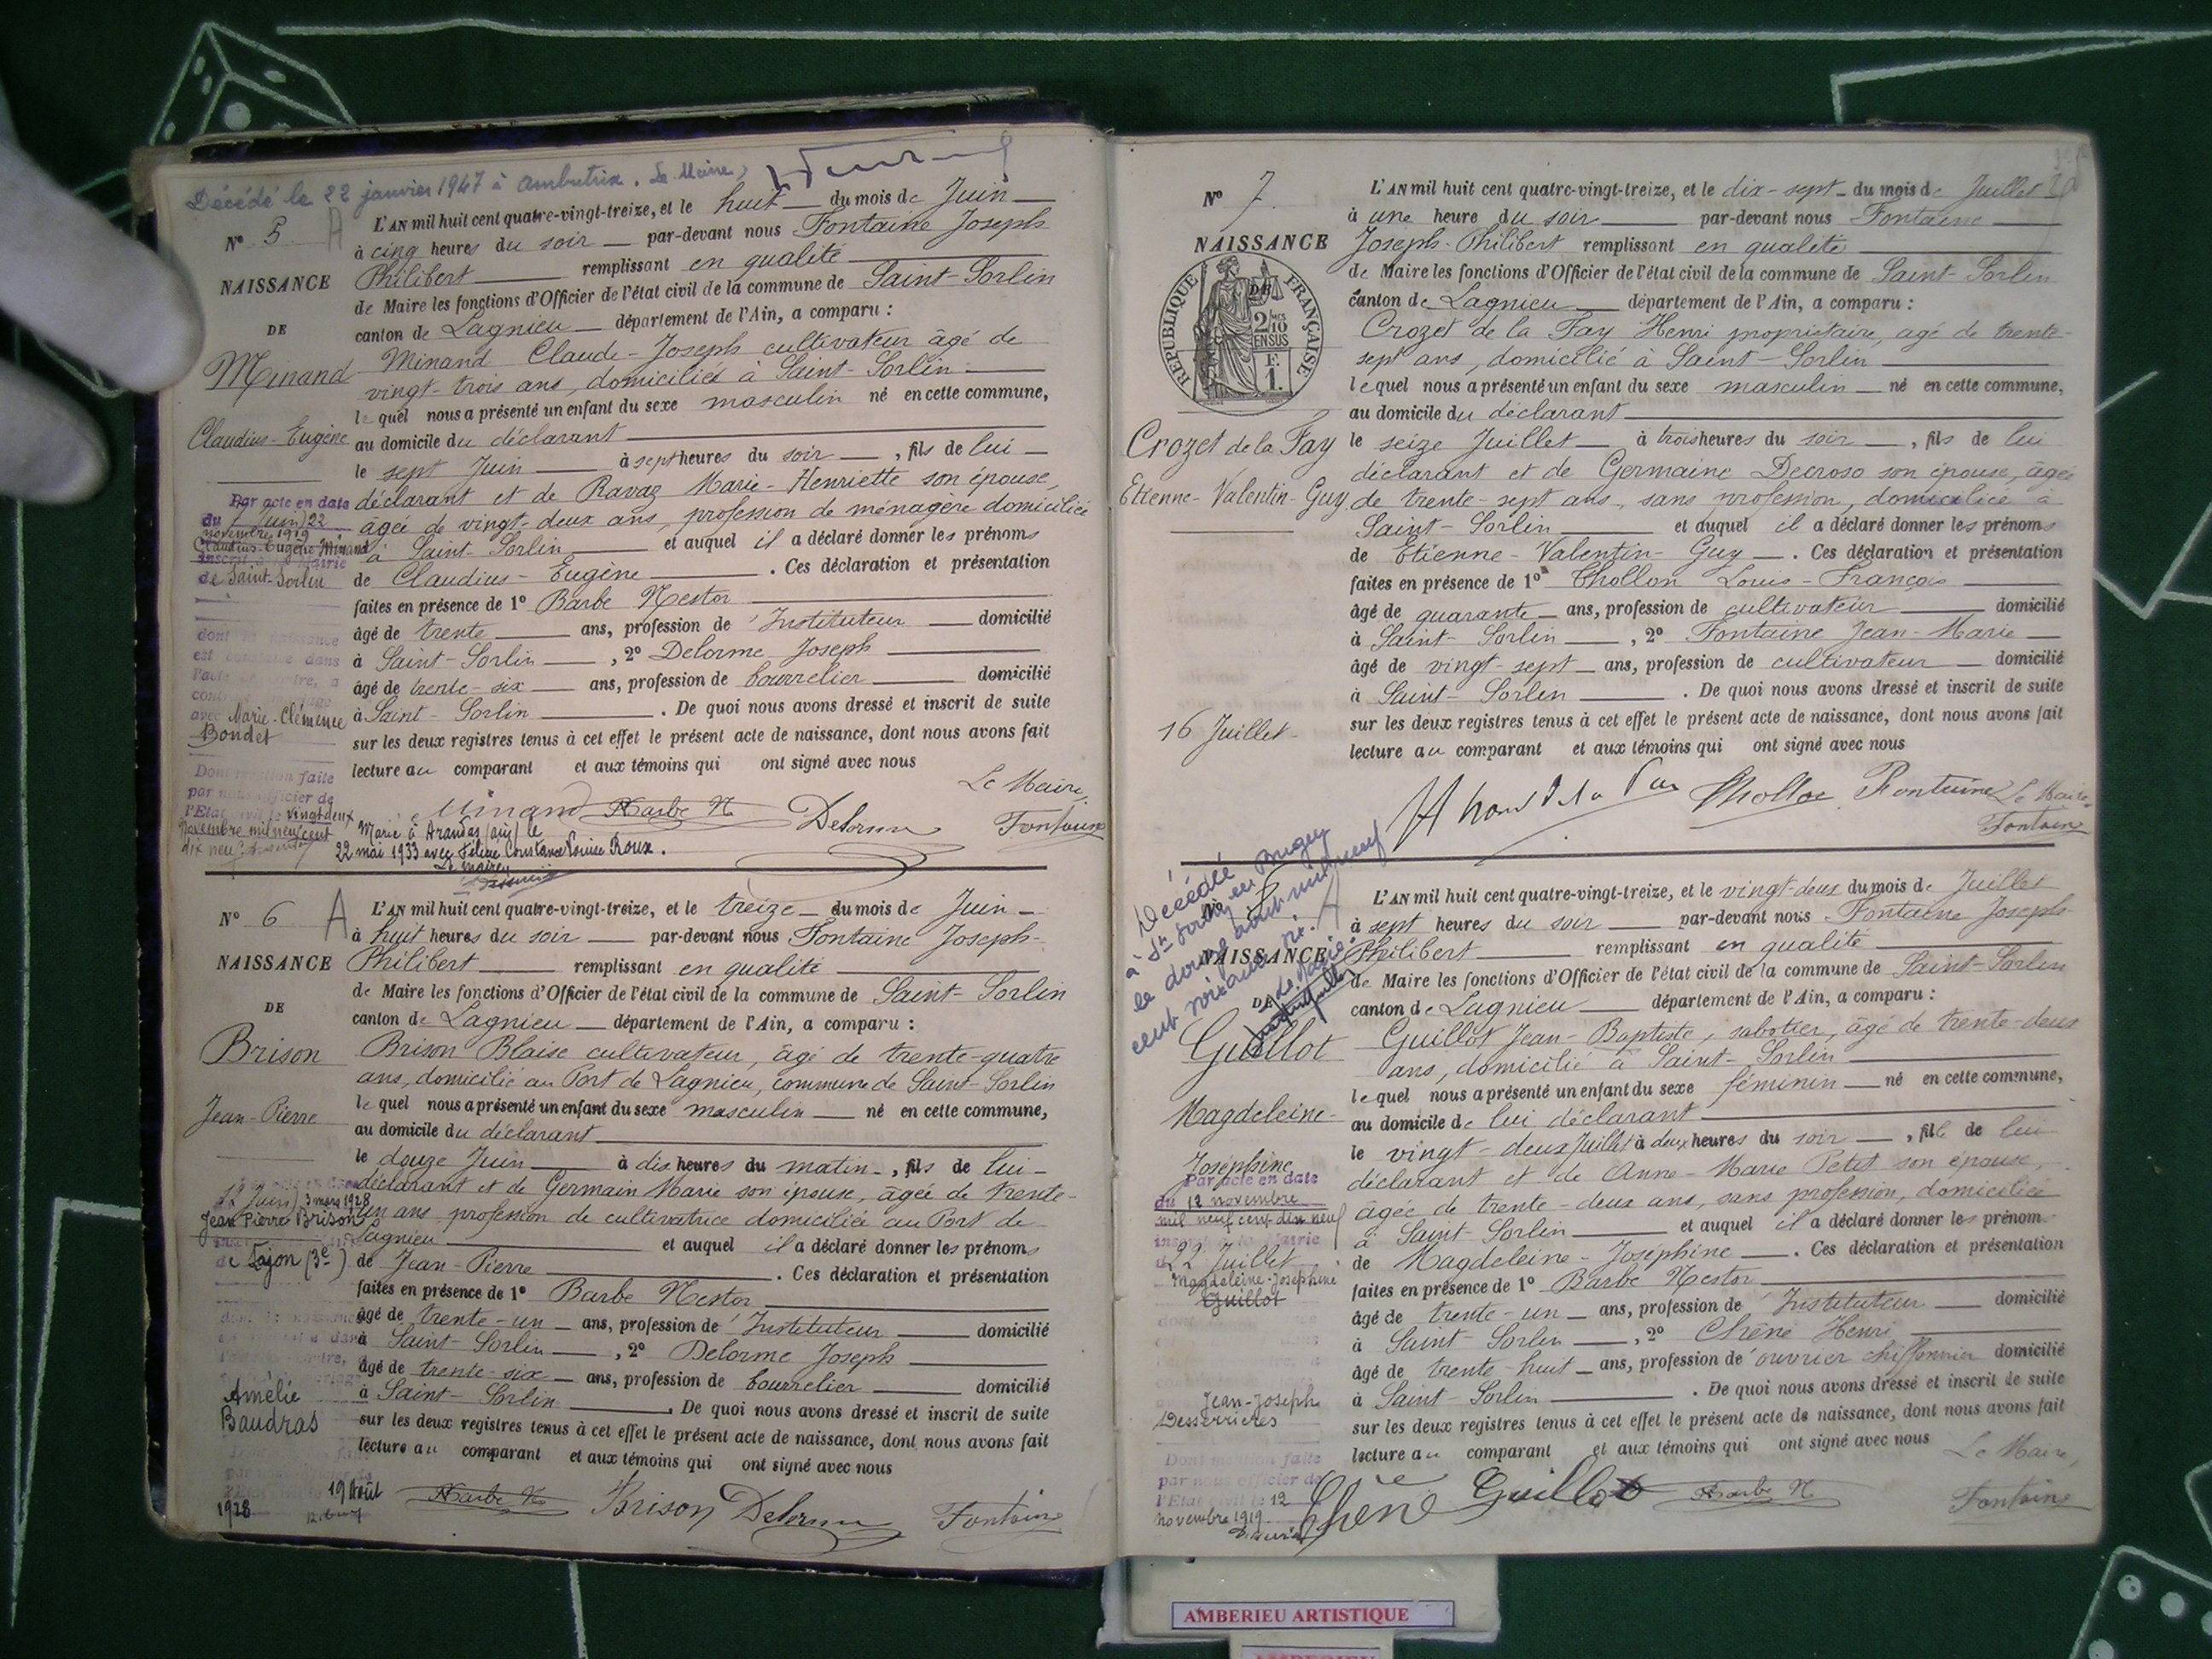 Décédé le 22 janvier 1947 à Ambutrix. Le Maire,
N° 5 A
NAISSANCE
DE
Minand
Claudius-Eugène
L'AN mil huit cent quatre-vingt-treize, et le huit du mois de Juin
à cinq heures du soir par-devant nous Fontaine Joseph
Philibert remplissant en qualité
de Maire les fonctions d'Officier de l'état civil de la commune de Saint-Sorlin
canton de Lagnieu département de l'Ain, a comparu :
Minand Claude-Joseph cultivateur âgé de
vingt-trois ans, domiciliés à Saint-Sorlin
lequel nous a présenté un enfant du sexe masculin né en cette commune,
au domicile du déclarant
le sept Juin à sept heures du soir, fils de lui
déclarant et de Ravaz Marie-Henriette son épouse,
âgée de vingt-deux ans, profession de ménagère domiciliée
à Saint-Sorlin et auquel il a déclaré donner les prénoms
de Claudius-Eugène. Ces déclaration et présentation
faites en présence de 1° Barbe Nestor
âgé de trente ans, profession de Instituteur domicilié
à Saint-Sorlin, 2° Delorme Joseph
âgé de trente-six ans, profession de bourrelier domicilié
à Saint-Sorlin. De quoi nous avons dressé et inscrit de suite
sur les deux registres tenus à cet effet le présent acte de naissance, dont nous avons fait
lecture au comparant et aux témoins qui ont signé avec nous
Le Maire,
Minand Barbe N. Delorme Fontaine
Par acte en date
du 7 Juin 22
novembre 1919
Claudius-Eugène Minand
inscrit à la Mairie
de Saint-Sorlin
dont la naissance
est constatée dans
l'acte ci-contre, a
avec Marie-Clémence
Bondet
Dont mention faite
par nous officier de
l'Etat civil le vingt deux
novembre mil neuf cent
dix neuf
Marié à Arandas (Ain) le
22 mai 1933 avec Félicie Constance Louise Roux.
Le Maire
N° 6 A
NAISSANCE
DE
Brison
Jean-Pierre
L'AN mil huit cent quatre-vingt-treize, et le treize du mois de Juin
à huit heures du soir par-devant nous Fontaine Joseph-
Philibert remplissant en qualité
de Maire les fonctions d'Officier de l'état civil de la commune de Saint-Sorlin
canton de Lagnieu département de l'Ain, a comparu :
Brison Blaise cultivateur, âgé de trente-quatre
ans, domicilié au Port de Lagnieu, commune de Saint-Sorlin
lequel nous a présenté un enfant du sexe masculin né en cette commune,
au domicile du déclarant
le douze Juin à dix heures du matin, fils de lui
déclarant et de Germain Marie son épouse, âgée de trente-
un ans profession de cultivatrice domiciliée au Port de
Lagnieu et auquel il a déclaré donner les prénoms
de Jean-Pierre. Ces déclaration et présentation
faites en présence de 1° Barbe Nestor
âgé de trente-un ans, profession de Instituteur domicilié
à Saint-Sorlin, 2° Delorme Joseph
âgé de trente-six ans, profession de bourrelier domicilié
à Saint-Sorlin. De quoi nous avons dressé et inscrit de suite
sur les deux registres tenus à cet effet le présent acte de naissance, dont nous avons fait
lecture au comparant et aux témoins qui ont signé avec nous
Barbe N. Brison Delorme Fontaine
12 Juin 3 mars 1928
Jean Pierre Brison
de (3e)
Amélie
Baudras
19 Août
1928
N° 7.
NAISSANCE
DE
RÉPUBLIQUE FRANÇAISE
2/10 EN SUS
F. 1.
Crozet de la Fay
Etienne-Valentin-Guy
16 Juillet
L'AN mil huit cent quatre-vingt-treize, et le dix-sept du mois de Juillet
à une heure du soir par-devant nous Fontaine
Joseph-Philibert remplissant en qualité
de Maire les fonctions d'Officier de l'état civil de la commune de Saint-Sorlin
canton de Lagnieu département de l'Ain, a comparu :
Crozet de la Fay Henri propriétaire, agé de trente-
sept ans, domicilié à Saint-Sorlin
lequel nous a présenté un enfant du sexe masculin né en cette commune,
au domicile du déclarant
le seize Juillet à trois heures du soir, fils de lui
déclarant et de Germaine son épouse, âgée
de trente-sept ans, sans profession, domiciliée à
Saint-Sorlin et auquel il a déclaré donner les prénoms
de Etienne-Valentin-Guy. Ces déclaration et présentation
faites en présence de 1° Chollon Louis-François
âgé de quarante ans, profession de cultivateur domicilié
à Saint-Sorlin, 2° Fontaine Jean-Marie
âgé de vingt-sept ans, profession de cultivateur domicilié
à Saint-Sorlin. De quoi nous avons dressé et inscrit de suite
sur les deux registres tenus à cet effet le présent acte de naissance, dont nous avons fait
lecture au comparant et aux témoins qui ont signé avec nous
Fontaine Le Maire,
Fontaine
Décédée
à St Sorlin en Bugey
le douze août mil neuf
cent soixante
Le Maire
NAISSANCE
DE
Guillot
Magdeleine-
Joséphine
L'AN mil huit cent quatre-vingt-treize, et le vingt-deux du mois de Juillet
à sept heures du soir par-devant nous Fontaine Joseph-
Philibert remplissant en qualité
de Maire les fonctions d'Officier de l'état civil de la commune de Saint-Sorlin
canton de Lagnieu département de l'Ain, a comparu :
Guillot Jean-Baptiste, sabotier, âgé de trente-deux
ans, domicilié à Saint-Sorlin
lequel nous a présenté un enfant du sexe féminin né en cette commune,
au domicile de lui déclarant
le vingt-deux Juillet à deux heures du soir, fille de lui
déclarant et de Anne-Marie Petit son épouse,
âgée de trente-deux ans, sans profession, domiciliée
à Saint-Sorlin et auquel il a déclaré donner les prénom
de Magdeleine-Joséphine. Ces déclaration et présentation
faites en présence de 1° Barbe Nestor
âgé de trente-un ans, profession de Instituteur domicilié
à Saint-Sorlin, 2° Chêne Henri
âgé de trente-huit ans, profession de ouvrier chiffonnier domicilié
à Saint-Sorlin. De quoi nous avons dressé et inscrit de suite
sur les deux registres tenus à cet effet le présent acte de naissance, dont nous avons fait
lecture au comparant et aux témoins qui ont signé avec nous
Le Maire,
Chêne Guillot Barbe N. Fontaine
Par acte en date
du 12 novembre
mil neuf cent dix neuf
22 Juillet
Magdeleine-Joséphine
Guillot
Jean-Joseph
Desserrières
Dont mention faite
par nous officier de
l'Etat civil le 12
novembre 1919
AMBERIEU ARTISTIQUE
AMBERIEU